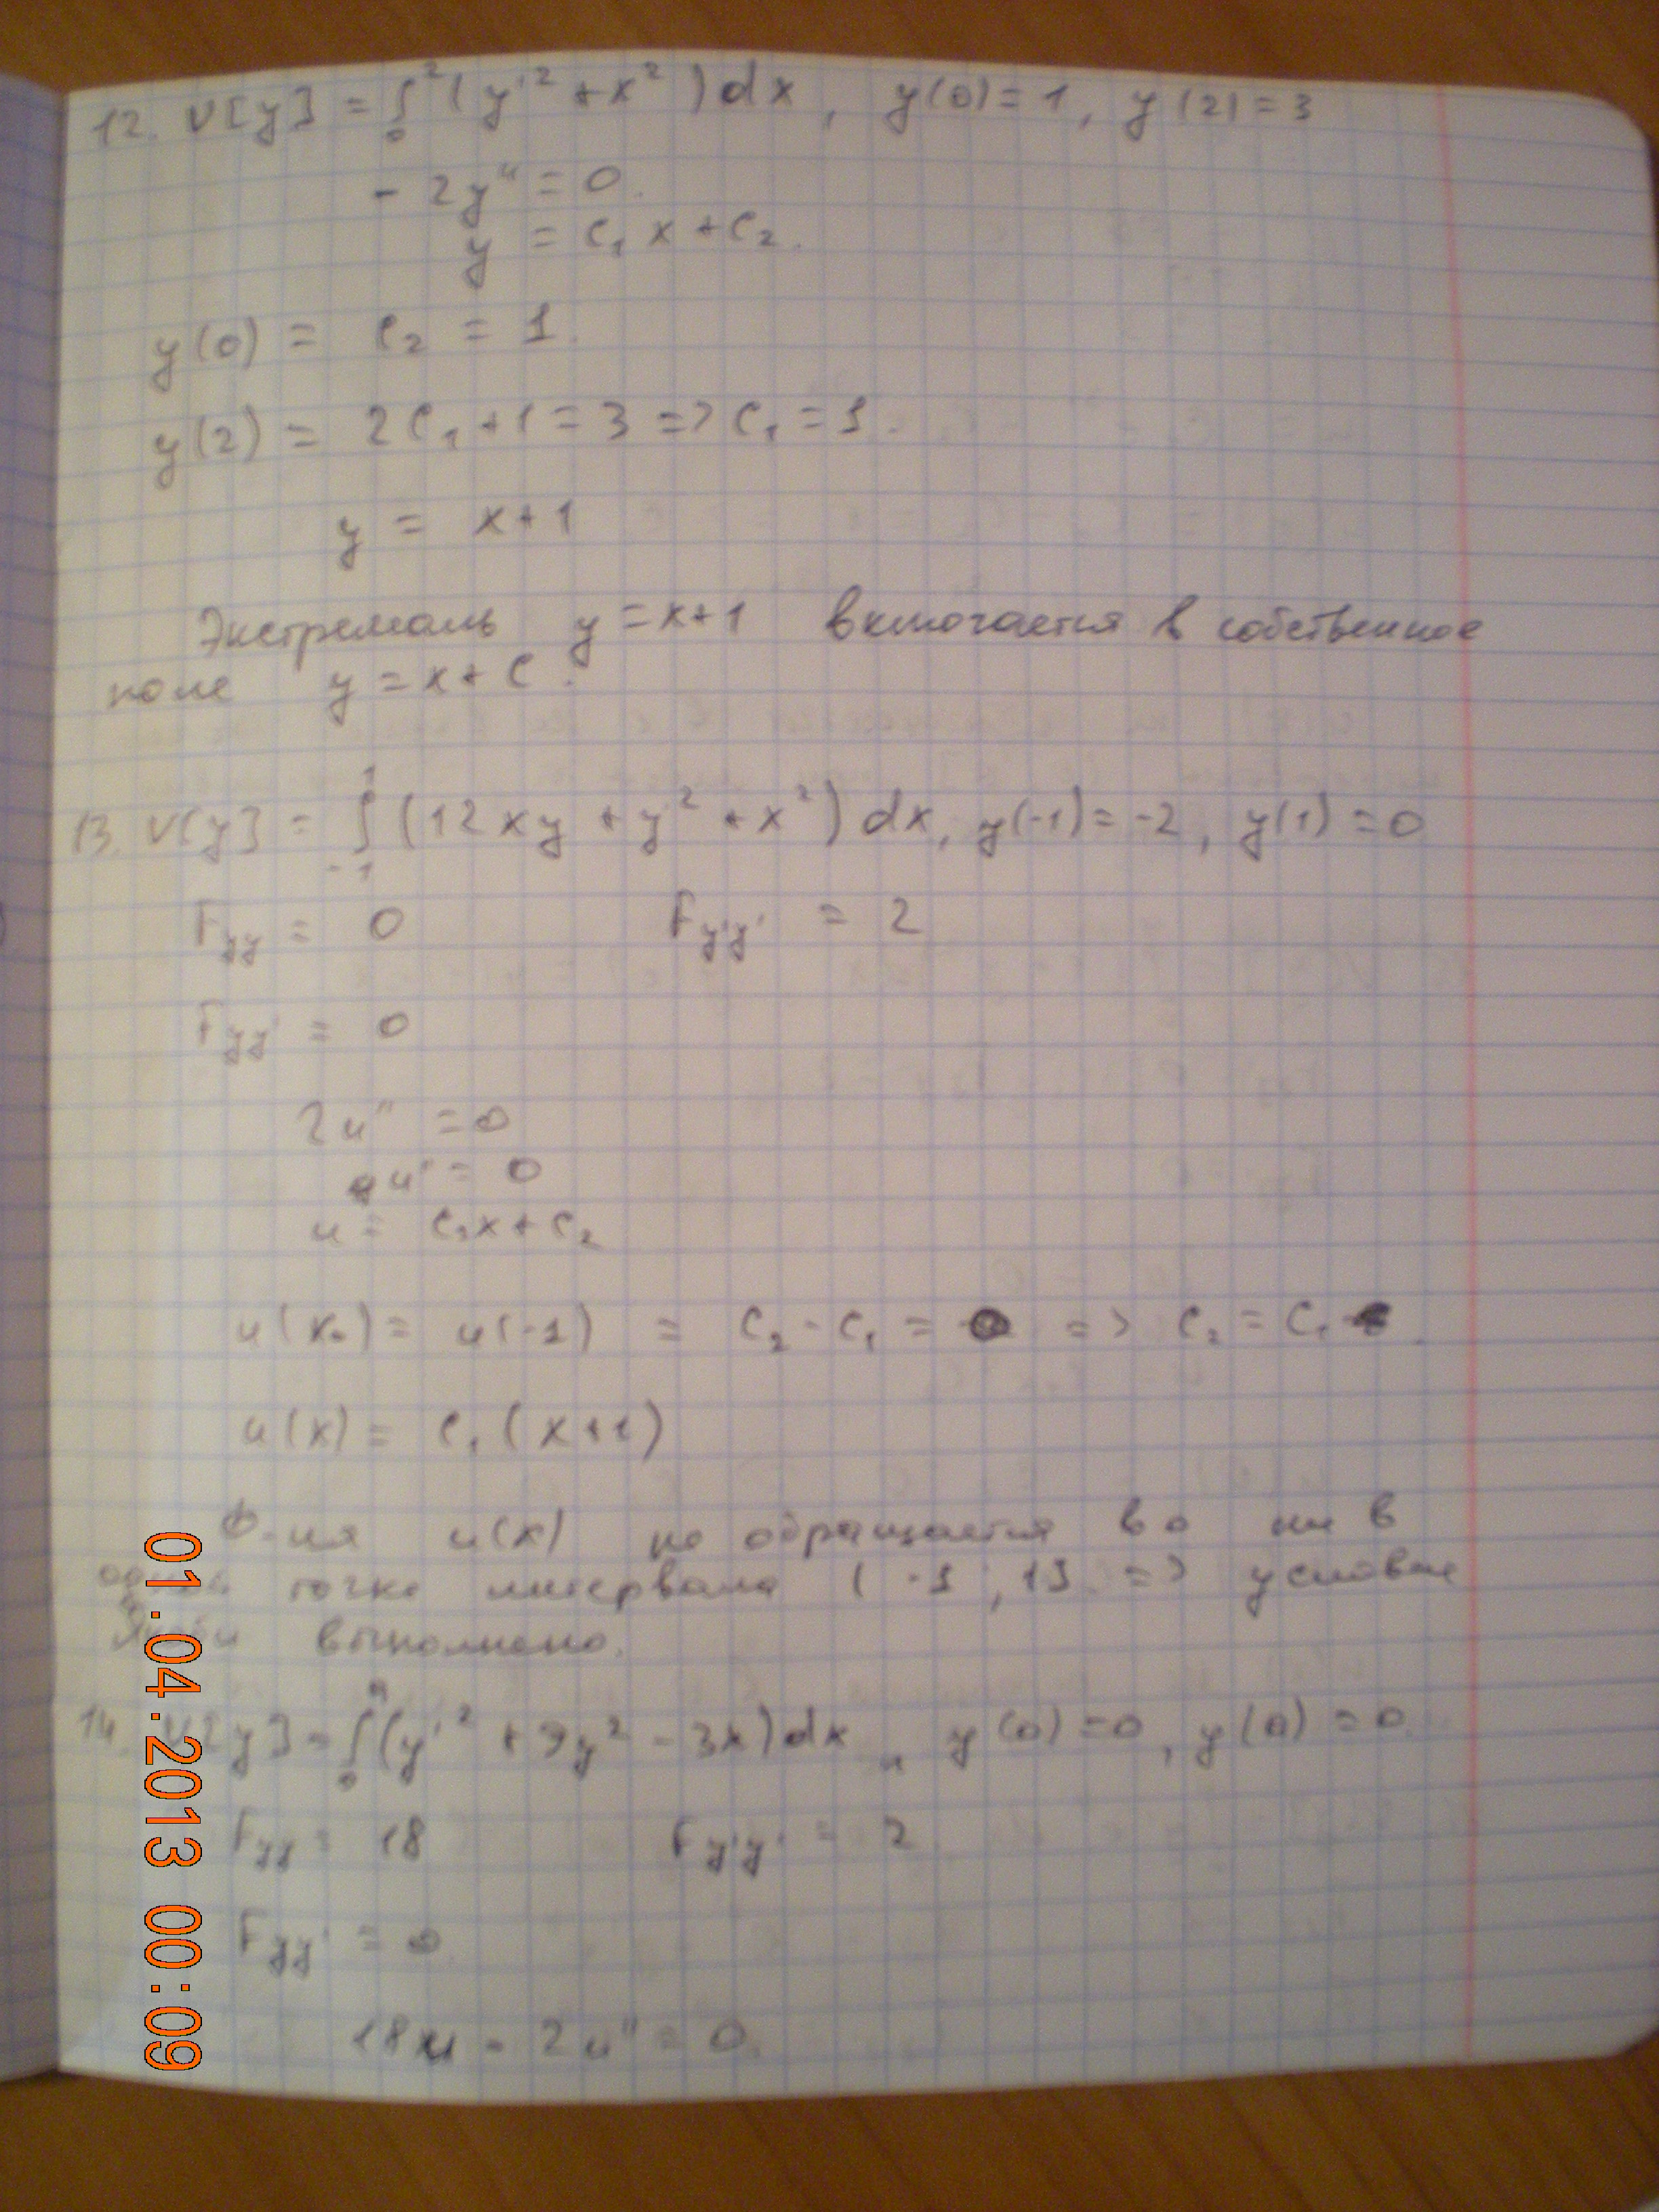 12. V[y] = ∫₀² (y'² + x²) dx, y(0) = 1, y(2) = 3
- 2y'' = 0.
y = C₁x + C₂.
y(0) = C₂ = 1.
y(2) = 2C₁ + 1 = 3 => C₁ = 1.
y = x + 1
Экстремаль y = x + 1 включается в собственное
поле y = x + C.
13. V[y] = ∫₋₁¹ (12xy + y² + x²) dx, y(-1) = -2, y(1) = 0
Fyy = 0 Fy'y' = 2
Fyy' = 0
2u'' = 0
u' = 0
u = C₁x + C₂
u(x₀) = u(-1) = C₂ - C₁ = 0 => C₂ = C₁
u(x) = C₁(x+1)
Ф-ия u(x) не обращается в 0 ни в
одной точке интервала (-1, 1] => условие
Якоби выполнено.
14. V[y] = ∫₀ (y'² + 9y² - 3x) dx, y(0) = 0, y(0) = 0.
Fyy = 18 Fy'y' = 2
Fyy' = 0.
18u - 2u'' = 0.
01.04.2013 00:09